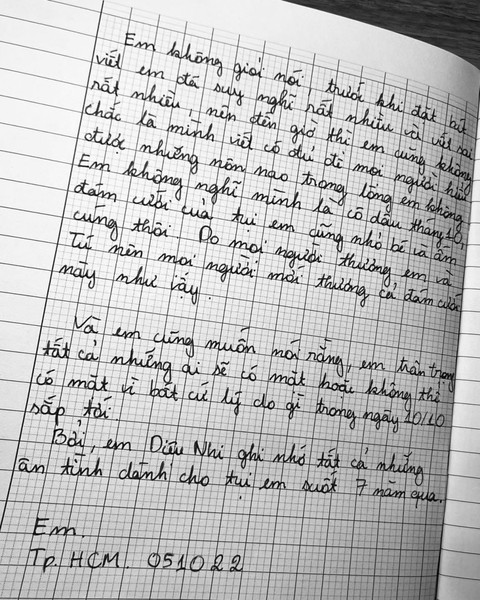 Em không giỏi nói, trước khi đặt bút
viết em đã suy nghĩ rất nhiều và viết sai
rất nhiều nên đến giờ thì em cũng không
chắc là mình viết có đủ để mọi người hiểu
được những nôn nao trong lòng em không.
Em không nghĩ mình là cô dâu tháng 10,
đám cưới của tụi em cũng nhỏ bé và ấm
cúng thôi. Do mọi người thương em và
Tú nên mọi người mới thương cả đám cưới
này như vậy.
Và em cũng muốn nói rằng, em trân trọng
tất cả những ai sẽ có mặt hoặc không thể
có mặt vì bất cứ lý do gì trong ngày 10/10
sắp tới.
Bởi, em Diệu Nhi ghi nhớ tất cả những
ân tình dành cho tụi em suốt 7 năm qua.
Em.
Tp. HCM. 051022